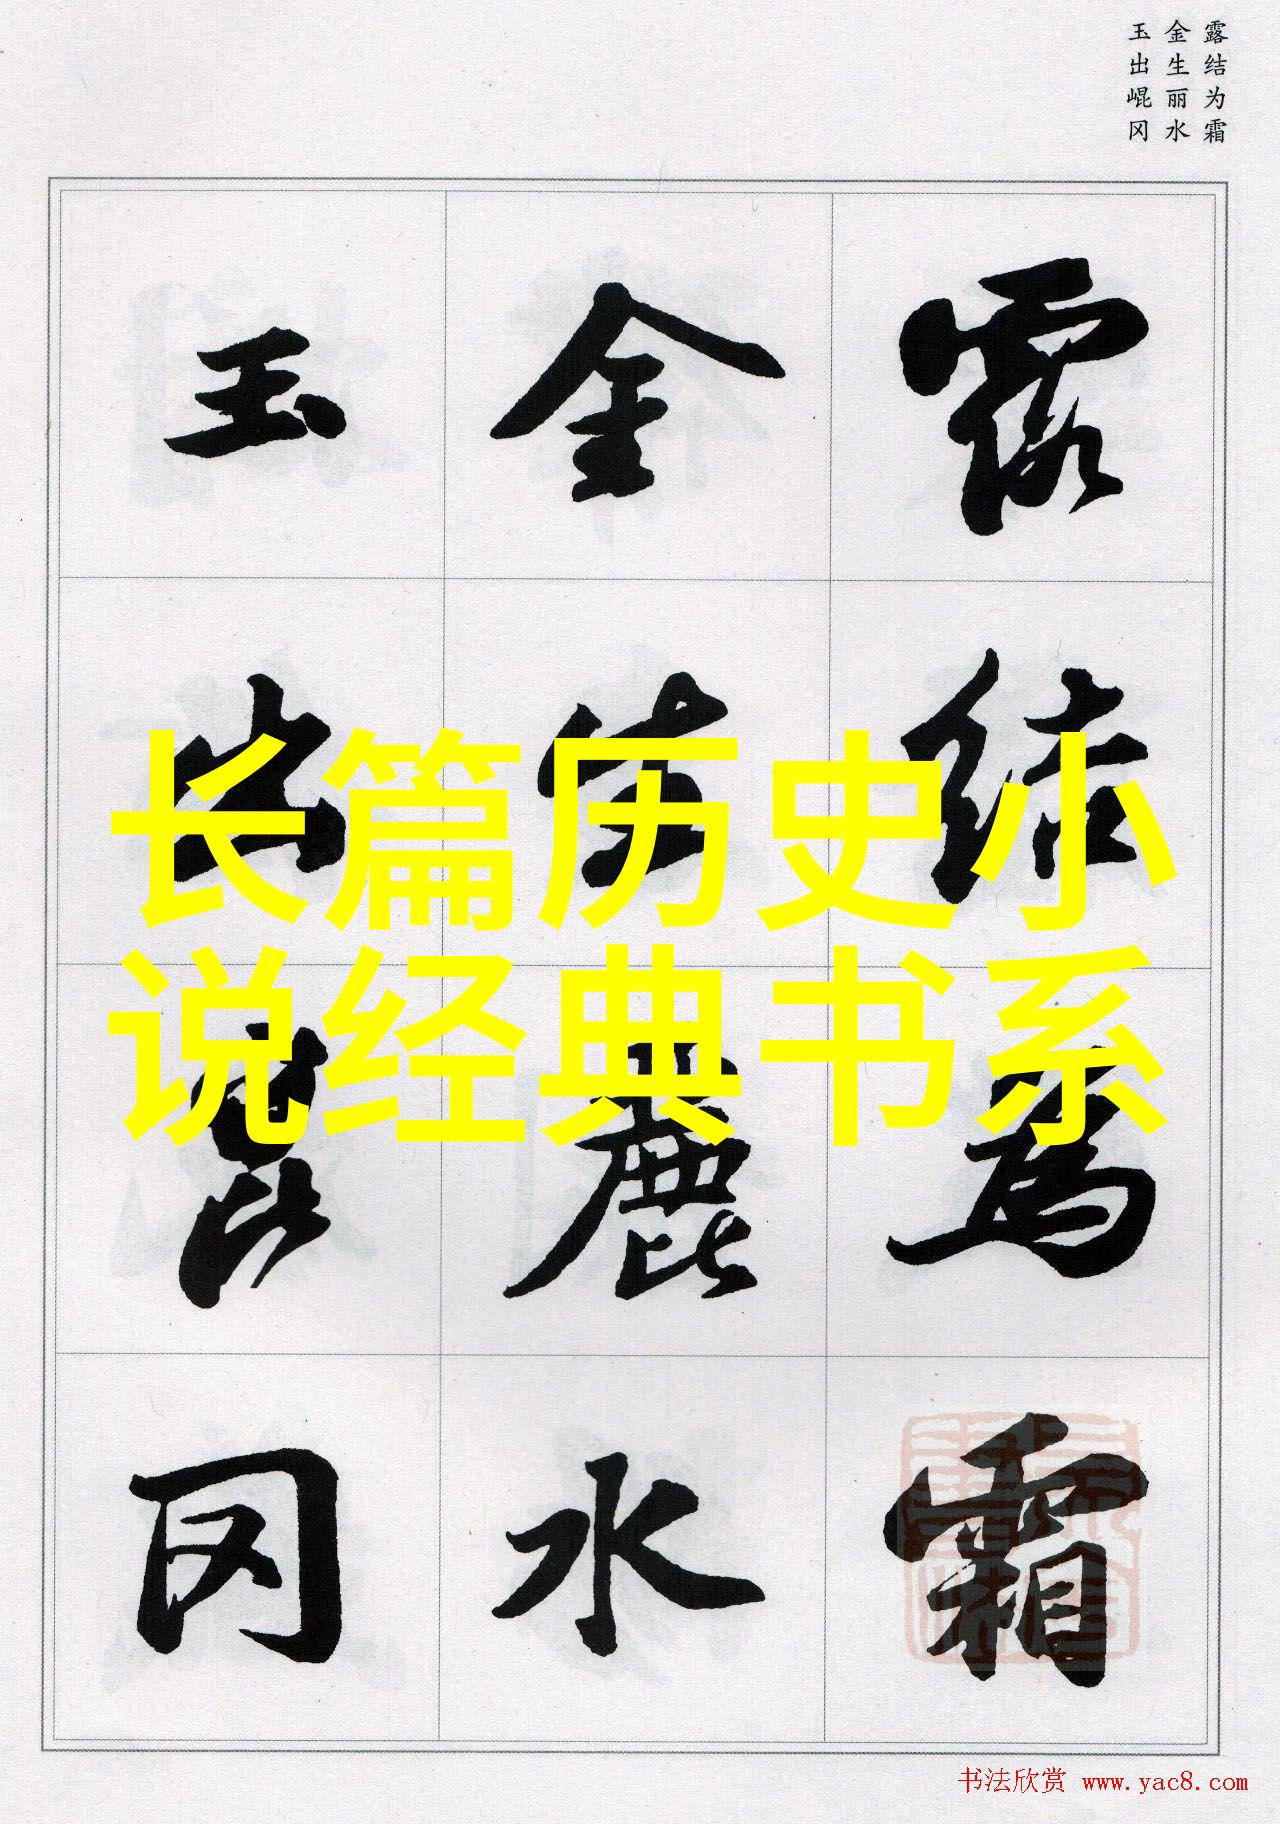 露结为霜
金生丽水
玉出崐冈
露結為霜
金生麗水
玉出崑岡
长篇历史小
说经典书系
书法欣赏 www.yac8.com